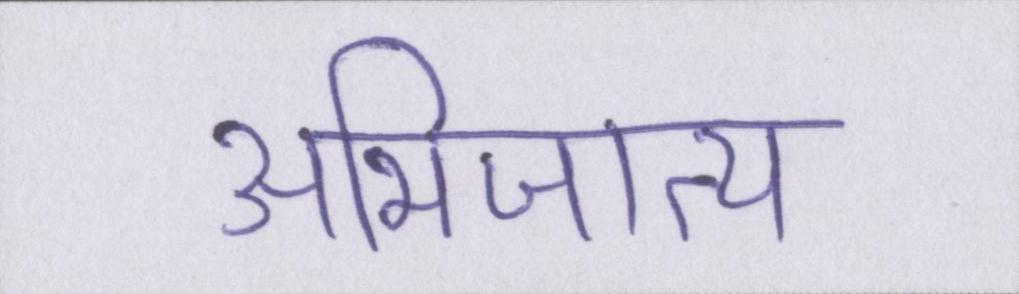 अभिजात्य